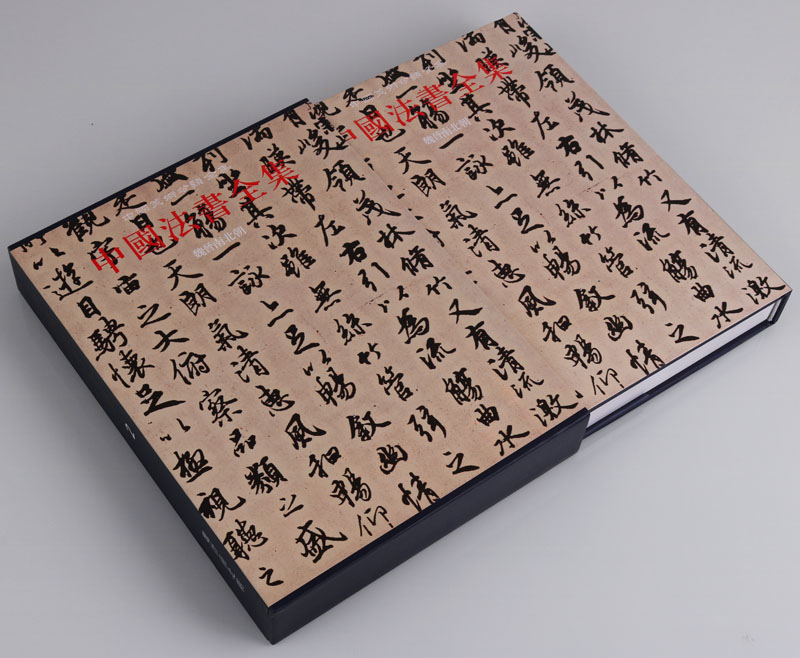 中國法書全集
魏晋南北朝
有峻領茂林脩竹又有清流激
湍暎帶左右引以為流觴曲水
列坐其次雖無絲竹管弦之
盛一觴一詠亦足以暢敘幽情
是日也天朗氣清惠風和暢仰
觀宇宙之大俯察品類之盛
所以遊目騁懷足以極視聽之
2
中國法書全集
魏晋南北朝
有峻領茂林脩竹又有清流激
湍暎帶左右引以為流觴曲水
列坐其次雖無絲竹管弦之
盛一觴一詠亦足以暢敘幽情
是日也天朗氣清惠風和暢仰